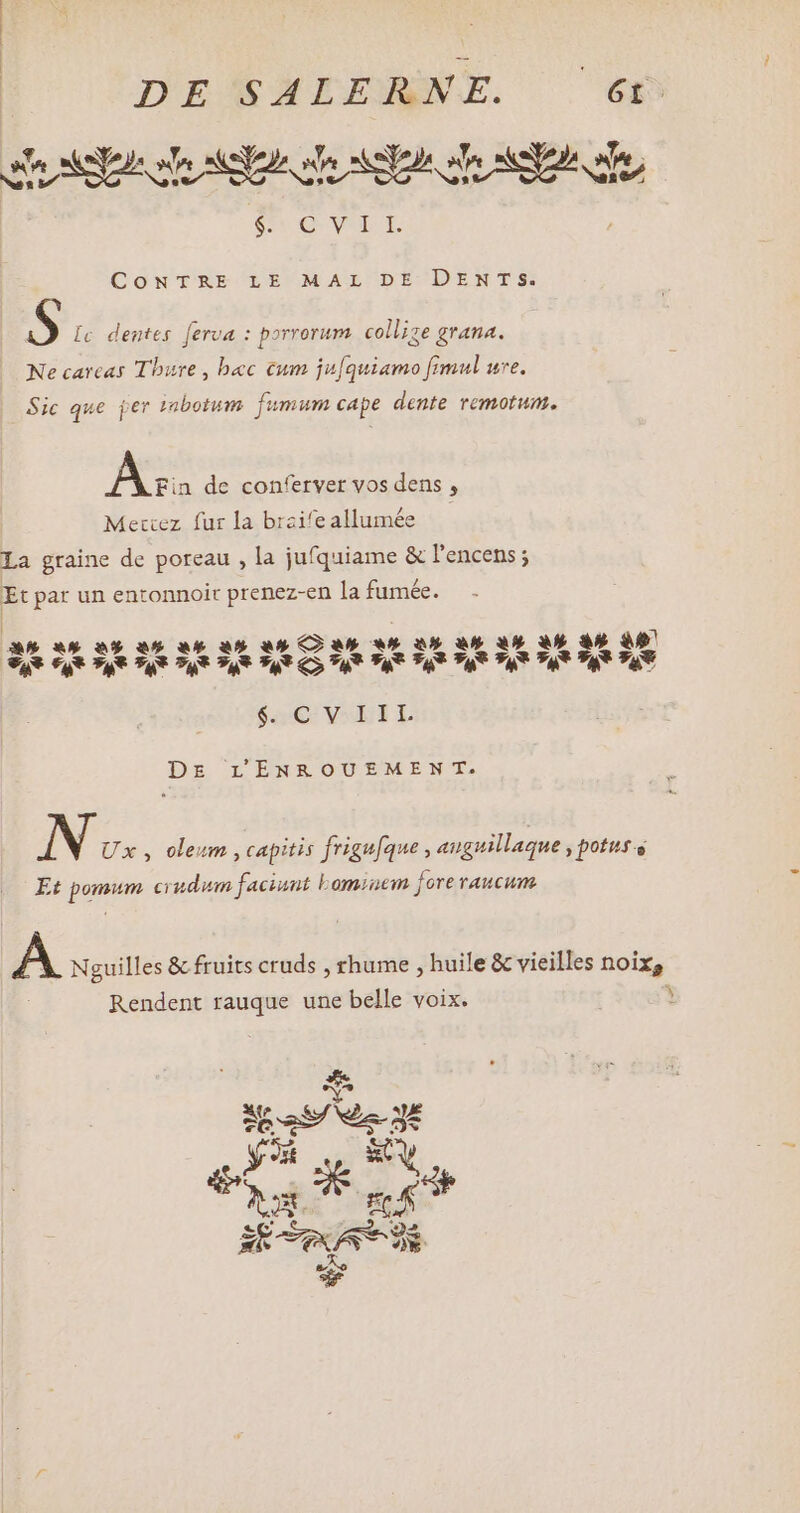 DE SALERNE. 61
§. CVII.
CONTRE LE MAL DE DENTS.
SIc dentes ſerva : porrorum collige grana.
Ne careas Thure, hæc cum juſquiamo ſimul ure.
Sic que per inbotum fumum cape dente remotum.
AFin de conſerver vos dens,
Mettez ſur la braiſe allumée
La graine de poreau, la juſquiame & l'encens;
Et par un entonnoir prenez-en la fumée.
§. CVIII.
DE L'ENROUEMENT.
NUx, oleum, capitis friguſque, anguillaque, potus
Et pomum crudum faciunt hominem fore raucum
ANguilles & fruits cruds, rhume, huile & vieilles noix,
Rendent rauque une belle voix.